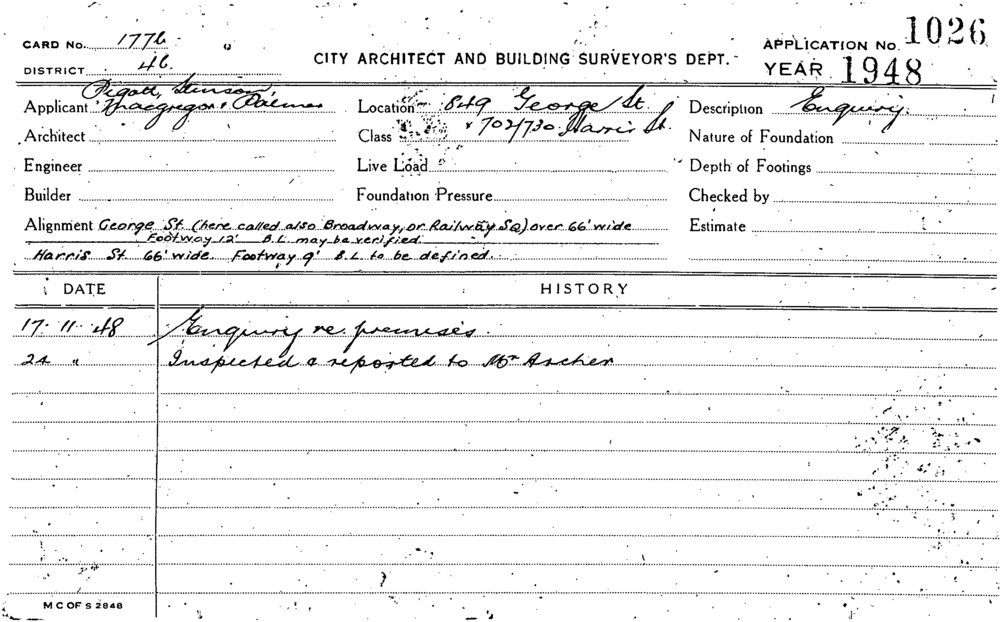 CARD No. 1776
APPLICATION No. 1026
DISTRICT 46.
CITY ARCHITECT AND BUILDING SURVEYOR'S DEPT.
YEAR 1948
Pigott, Stinson,
Applicant Macgregor & Palmer
Location 849 George St.
Description Enquiry.
Architect
Class & 702/730 Harris St.
Nature of Foundation
Engineer
Live Load
Depth of Footings
Builder
Foundation Pressure
Checked by
Alignment George St. (here called also Broadway, or Railway SQ) over 66' wide
Estimate
Footway 12' B.L. may be verified.
Harris St. 66' wide. Footway 9' B.L to be defined.
DATE HISTORY
17. 11. 48 Enquiry re premises.
24 " Inspected & reported to Mr Archer
M C OF S 2848